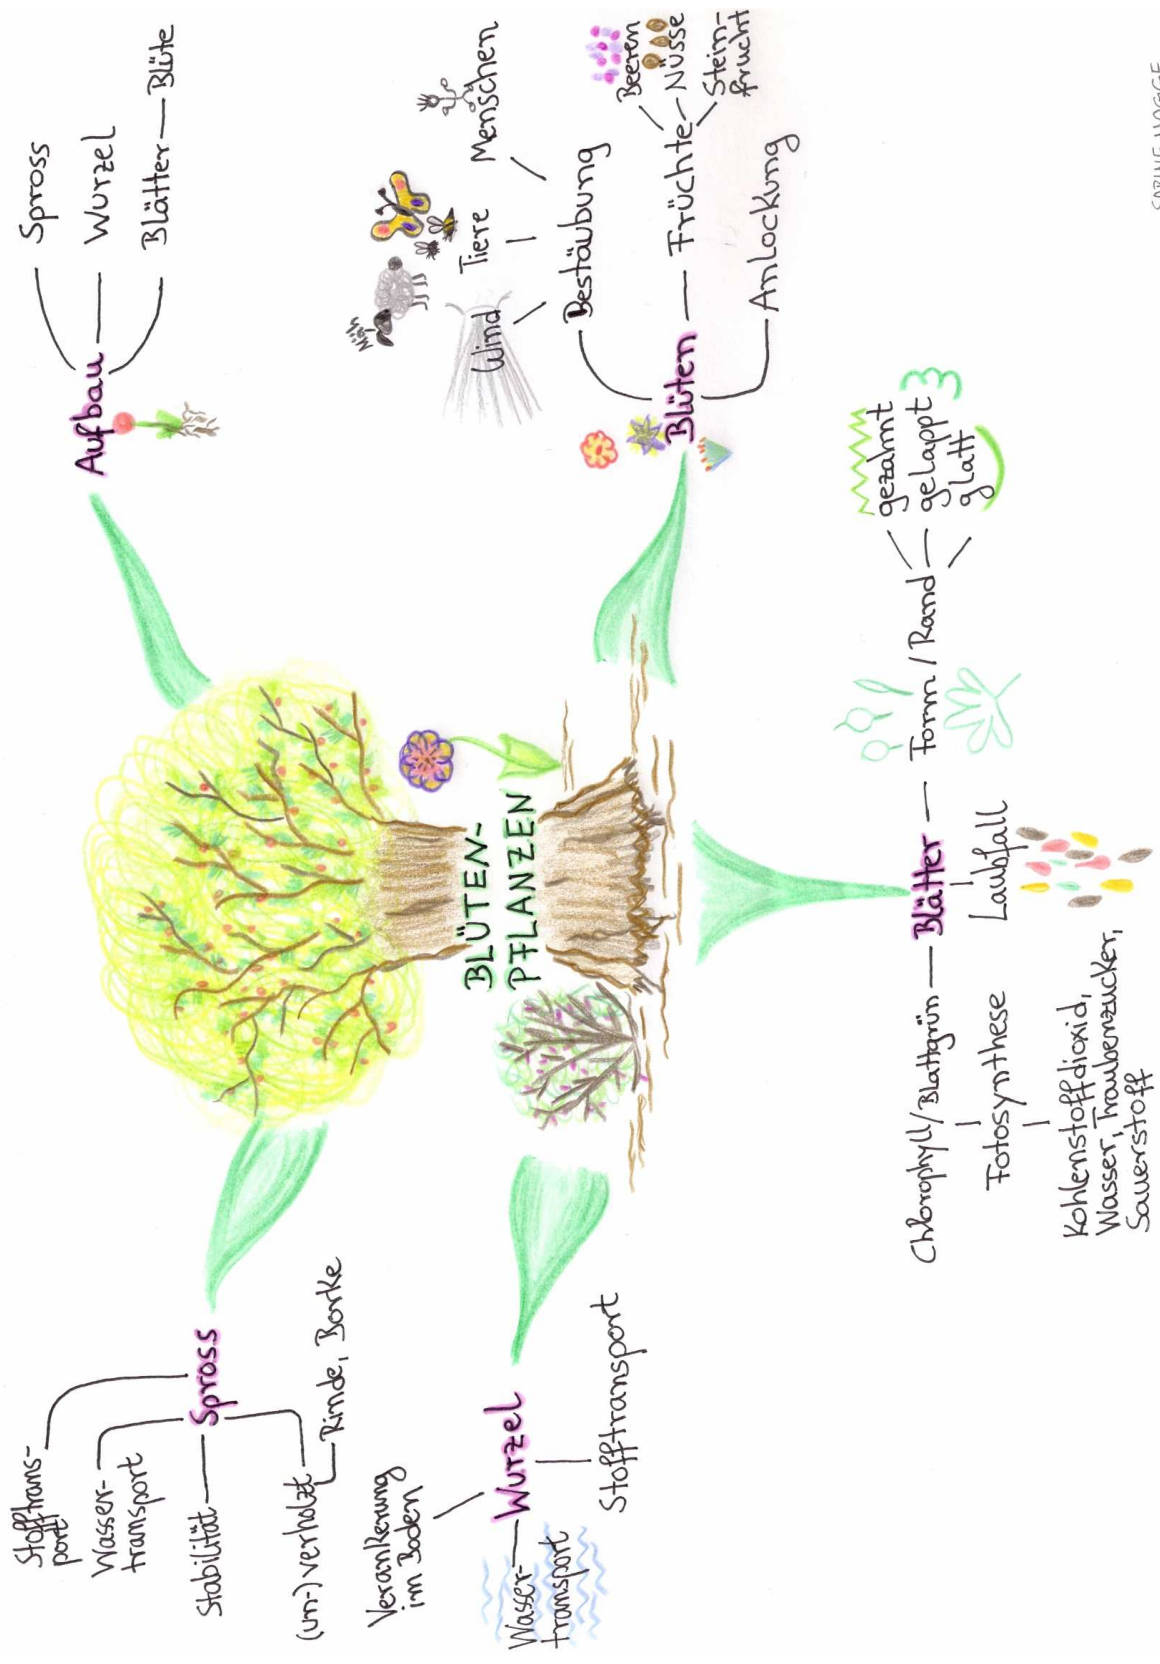 BLÜTEN-
PFLANZEN
Aufbau
Spross
Wurzel
Blätter
Blüte
Blüten
Bestäubung
Wind
Tiere
Menschen
Früchte
Beeren
Nüsse
Stein-
frucht
Anlockung
Blätter
Form / Rand
gezahnt
gelappt
glatt
Laubfall
Chlorophyll/Blattgrün
Fotosynthese
Kohlenstoffdioxid,
Wasser, Traubenzucker,
Sauerstoff
Wurzel
Verankerung
im Boden
Wasser-
transport
Stofftransport
Spross
Stofftrans-
port
Wasser-
transport
Stabilität
(un-)verholzt
Rinde, Borke